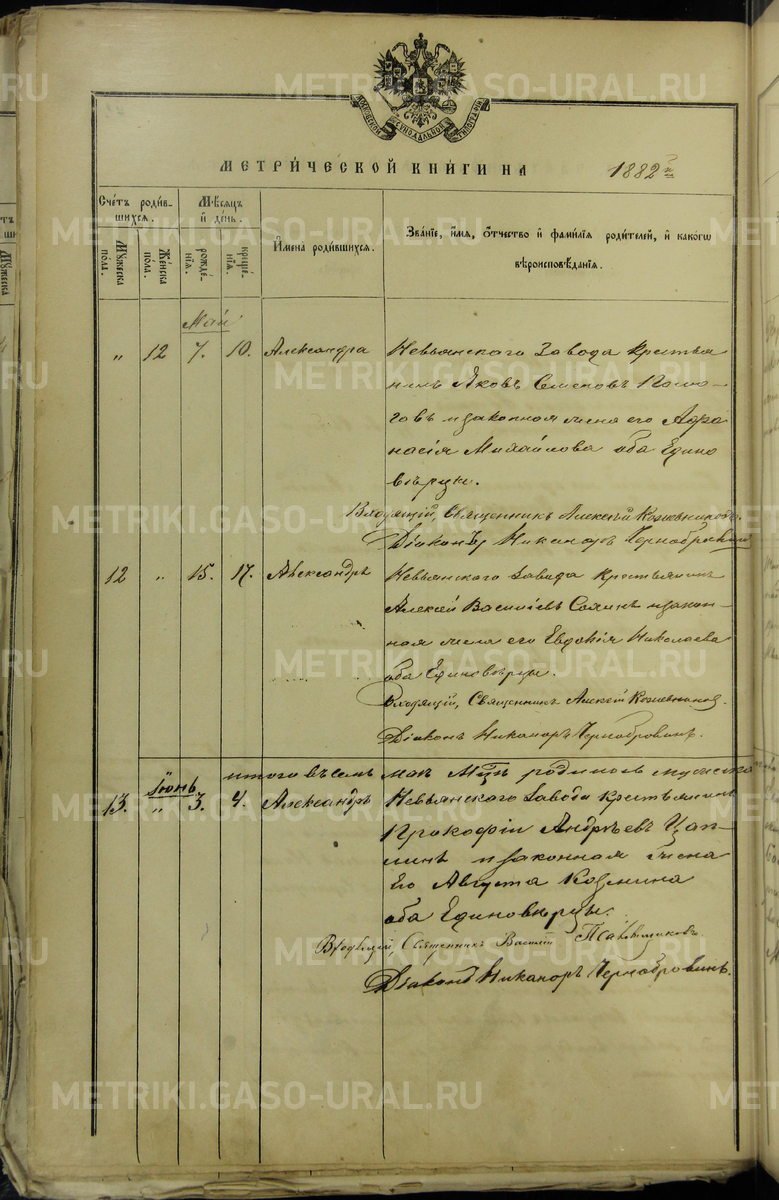 МОСКОВСКОЙ СУНОДАЛЬНОЙ ТИПОГРАФІИ
МЕТРИЧЕСКОЙ КНИГИ НА 1882 г.
Счетъ родив-
шихся.
Мѣсяцъ
и день.
Мужеска
пола.
Женска
пола.
рожде-
нія.
креще-
нія.
Имена родившихся.
Званіе, имя, отчество и фамилія родителей, и какогѡ
вѣроисповѣданія.
Май
„ 12 7. 10. Александра
Невьянскаго Завода крестья
нинъ Яковъ Семеновъ
и законная жена его Афа
насія Михайлова оба Едино
вѣрцы.
Входящій, Священникъ Алексѣй Кожевниковъ.
Діаконъ Никаноръ Чернобровинъ
12 „ 15. 17. Александръ
Невьянскаго Завода крестьянинъ
Алексѣй Василіевъ и закон-
ная жена его Евдокія Николаева
оба Единовѣрцы.
Входящій, Священникъ Алексѣй Кожевниковъ.
Діаконъ Никаноръ Чернобровинъ.
итого въ семъ маѣ мцѣ родилось мужска
Іюнь
13. „ 3. 4. Александръ
Невьянскаго Завода крестьянинъ
Прокофій Андрѣевъ Цап-
линъ и законная жена
его Августа Козмина
оба Единовѣрцы.
Священникъ Василій
Діаконъ Никаноръ Чернобровинъ.
METRIKI.GASO-URAL.RU